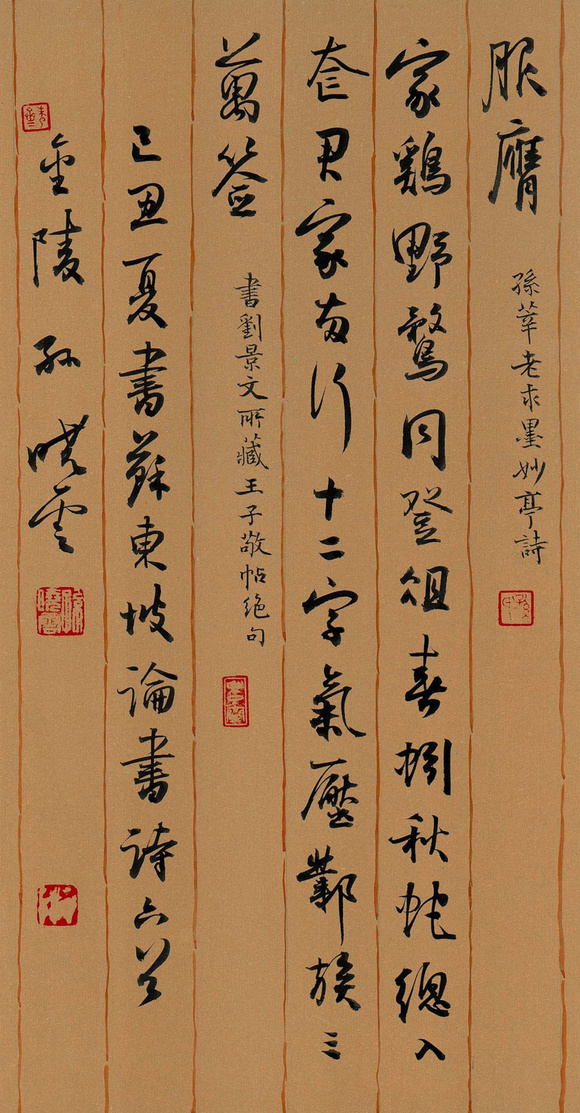 服膺
孫莘老求墨妙亭詩
家鷄野鶩同登俎春蚓秋蛇總入
奁君家兩行十二字氣壓鄴侯三
萬签
書劉景文所藏王子敬帖絕句
己丑夏書蘇東坡論書詩六首
金陵孫曉雲